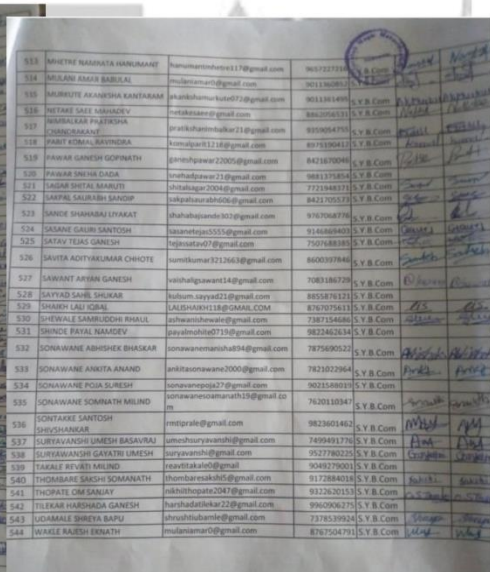 513 MHETRE NAMRATA HANUMANT hanumantmhetre117@gmail.com S.Y.B.Com
514 MULANI AMAR BABULAL mulaniamar0@gmail.com S.Y.B.Com
515 MURKUTE AKANKSHA KANTARAM akankshamurkute072@gmail.com 9011361495 S.Y.B.Com
516 NETAKE SAEE MAHADEV netakesaee@gmail.com S.Y.B.Com
517 NIMBALKAR PRATIKSHA
CHANDRAKANT pratikshanimbalkar21@gmail.com 9359054755 S.Y.B.Com
518 PABIT KOMAL RAVINDRA komalparit1216@gmail.com 8979190412 S.Y.B.Com
519 PAWAR GANESH GOPINATH ganeshpawar22005@gmail.com 8421670046 S.Y.B.Com
520 PAWAR SNEHA DADA snehadpawar21@gmail.com 9881375854 S.Y.B.Com
521 SAGAR SHITAL MARUTI shitalsagar2004@gmail.com 7721948371 S.Y.B.Com
522 SAKPAL SAURABH SANDIP sakpalsaurabh606@gmail.com 8421705573 S.Y.B.Com
523 SANDE SHAHABAJ LIYAKAT shahabajsande302@gmail.com 9767068776 S.Y.B.Com
524 SASANE GAURI SANTOSH sasanetejas5555@gmail.com 9146869403 S.Y.B.Com
525 SATAV TEJAS GANESH tejassatav07@gmail.com 7507688385 S.Y.B.Com
526 SAVITA ADITYAKUMAR CHHOTE sumitkumar3212663@gmail.com 8600397846 S.Y.B.Com
527 SAWANT ARYAN GANESH vaishaligsawant14@gmail.com 7083186729 S.Y.B.Com
528 SAYYAD SAHIL SHUKAR kulsum.sayyad21@gmail.com 8855876121 S.Y.B.Com
529 SHAIKH LALI IQBAL LALISHAIKH118@GMAIL.COM 8767075611 S.Y.B.Com
530 SHEWALE SAMRUDDHI RHAUL ashwanishewale@gmail.com 7387154686 S.Y.B.Com
531 SHINDE PAYAL NAMDEV payalmohite0719@gmail.com 9822462634 S.Y.B.Com
532 SONAWANE ABHISHEK BHASKAR sonawanemanisha894@gmail.com 7875690522 S.Y.B.Com
533 SONAWANE ANKITA ANAND ankitasonawane2000@gmail.com 7821022964 S.Y.B.Com
534 SONAWANE POJA SURESH sonawanepoja27@gmail.com 9021588019 S.Y.B.Com
535 SONAWANE SOMNATH MILIND sonawanesomanath19@gmail.co
m 7620110347 S.Y.B.Com
536 SONTAKKE SANTOSH
SHIVSHANKAR rmtiprale@gmail.com 9823601462 S.Y.B.Com
537 SURYAVANSHI UMESH BASAVRAJ umeshsuryavanshi@gmail.com 7499491776 S.Y.B.Com
538 SURYAWANSHI GAYATRI UMESH suryavanshi@gmail.com 9527780225 S.Y.B.Com
539 TAKALE REVATI MILIND reavtitakale0@gmail 9049279001 S.Y.B.Com
540 THOMBARE SAKSHI SOMANATH thombaresakshi5@gmail.com 9172884018 S.Y.B.Com
541 THOPATE OM SANJAY nikhilthopate2047@gmail.com 9322620153 S.Y.B.Com
542 TILEKAR HARSHADA GANESH harshadatilekar22@gmail.com 9960906275 S.Y.B.Com
543 UDAMALE SHREYA BAPU shrushtiubamle@gmail.com 7378539924 S.Y.B.Com
544 WAKLE RAJESH EKNATH mulaniamar0@gmail.com 8767504791 S.Y.B.Com